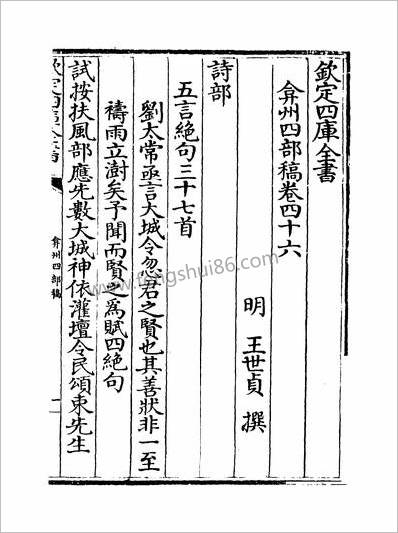 欽定四庫全書
弇州四部稿卷四十六
明 王世貞 撰
詩部
五言絶句三十七首
劉太常亟言大城令忽君之賢也其善狀非一至
禱雨立澍矣予聞而賢之為賦四絶句
試按扶風部應先數大城神依灌壇令民頌束先生
欽定四庫全書
弇州四部稿
一
www.fengshui86.com